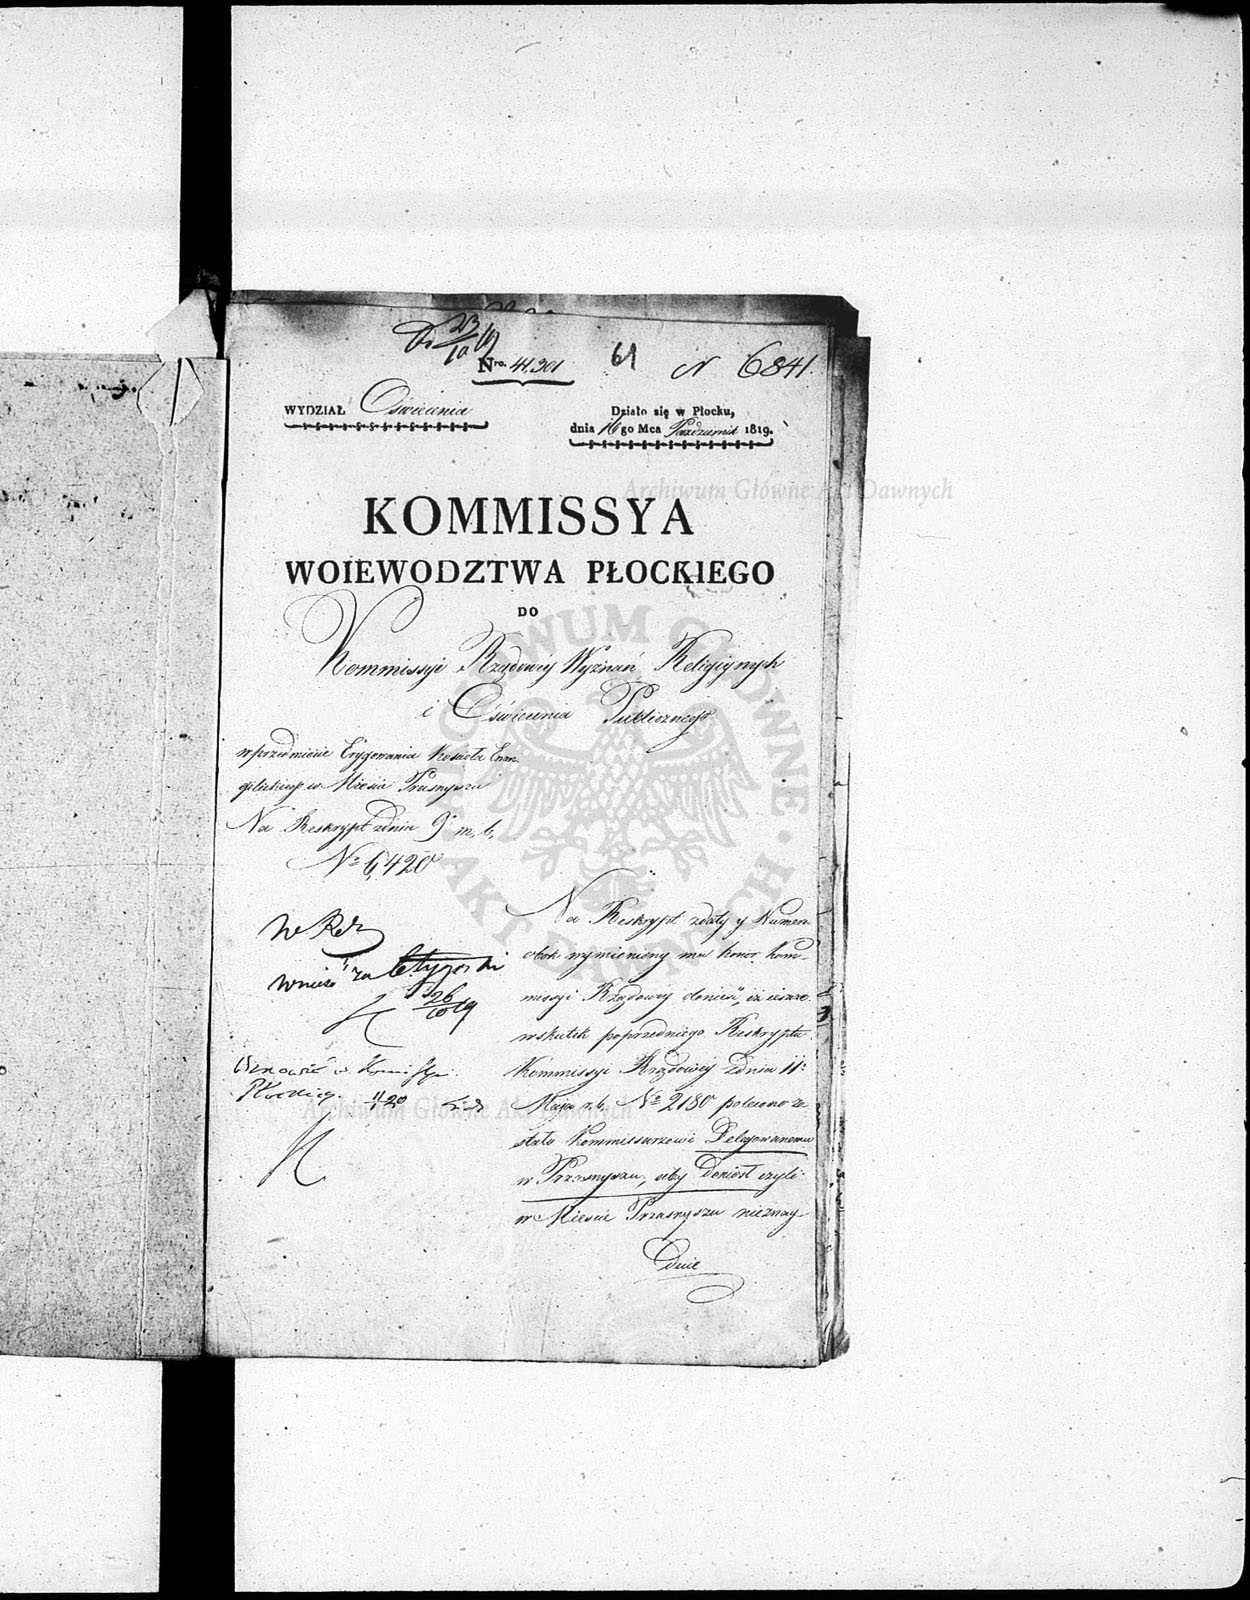 23/10 19
Nro. 41,301
61
N 6841.
WYDZIAŁ Oświecenia
Działo się w Płocku,
dnia 16go Mca Październik 1819.
KOMMISSYA
WOIEWODZTWA PŁOCKIEGO
DO
Kommissyi Rządowey Wyznań Religiynych
i Oświecenia Publicznego
w przedmiocie Erygowania Kościoła Ewan
gelickiego w Mieście Prasnyszu
Na Reskrypt z dnia 9 m. b.
No 6,420
Na Reskrypt z daty y Numeru
obok wymieniony ma honor Kom-
missyi Rządowey donieść, iż ieszcze
w skutek poprzedniego Reskryptu
Kommissyi Rządowey z dnia 11o
Maja r. b. No 2180 polecono zo-
stało Kommissarzowi Delegowanemu
w Przasnyszu, aby doniosł czyli
w Mieście Przasnyszu nieznay-
duie
wnieść za
26/10 19
w Kommissyi
11/1 20
Archiwum Główne Akt Dawnych
Archiwum Główne Akt Dawnych
ARCHIWUM GŁÓWNE AKT DAWNYCH